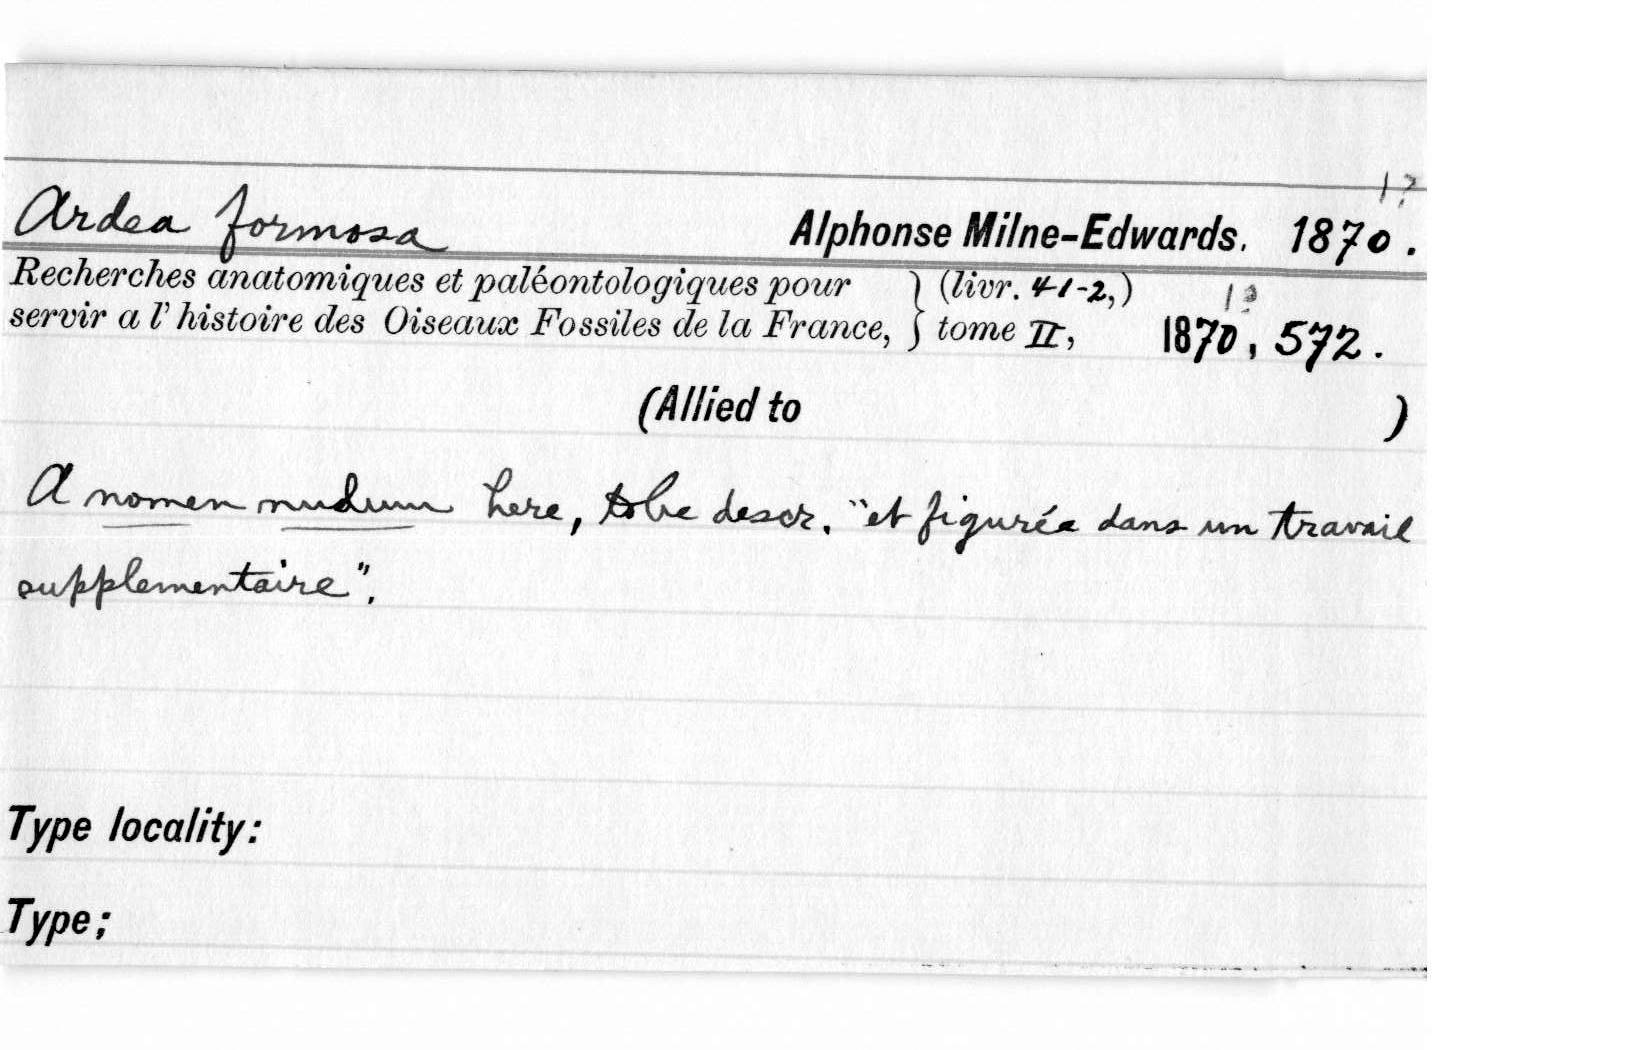 1?
Ardea formosa Alphonse Milne-Edwards. 1870.
Recherches anatomiques et paléontologiques pour } (livr. 41-2,) 1?
servir a l' histoire des Oiseaux Fossiles de la France, } tome II, 1870, 572.
(Allied to )
A nomen nudum here, to be descr. "et figurée dans un travail
supplementaire".
Type locality:
Type;